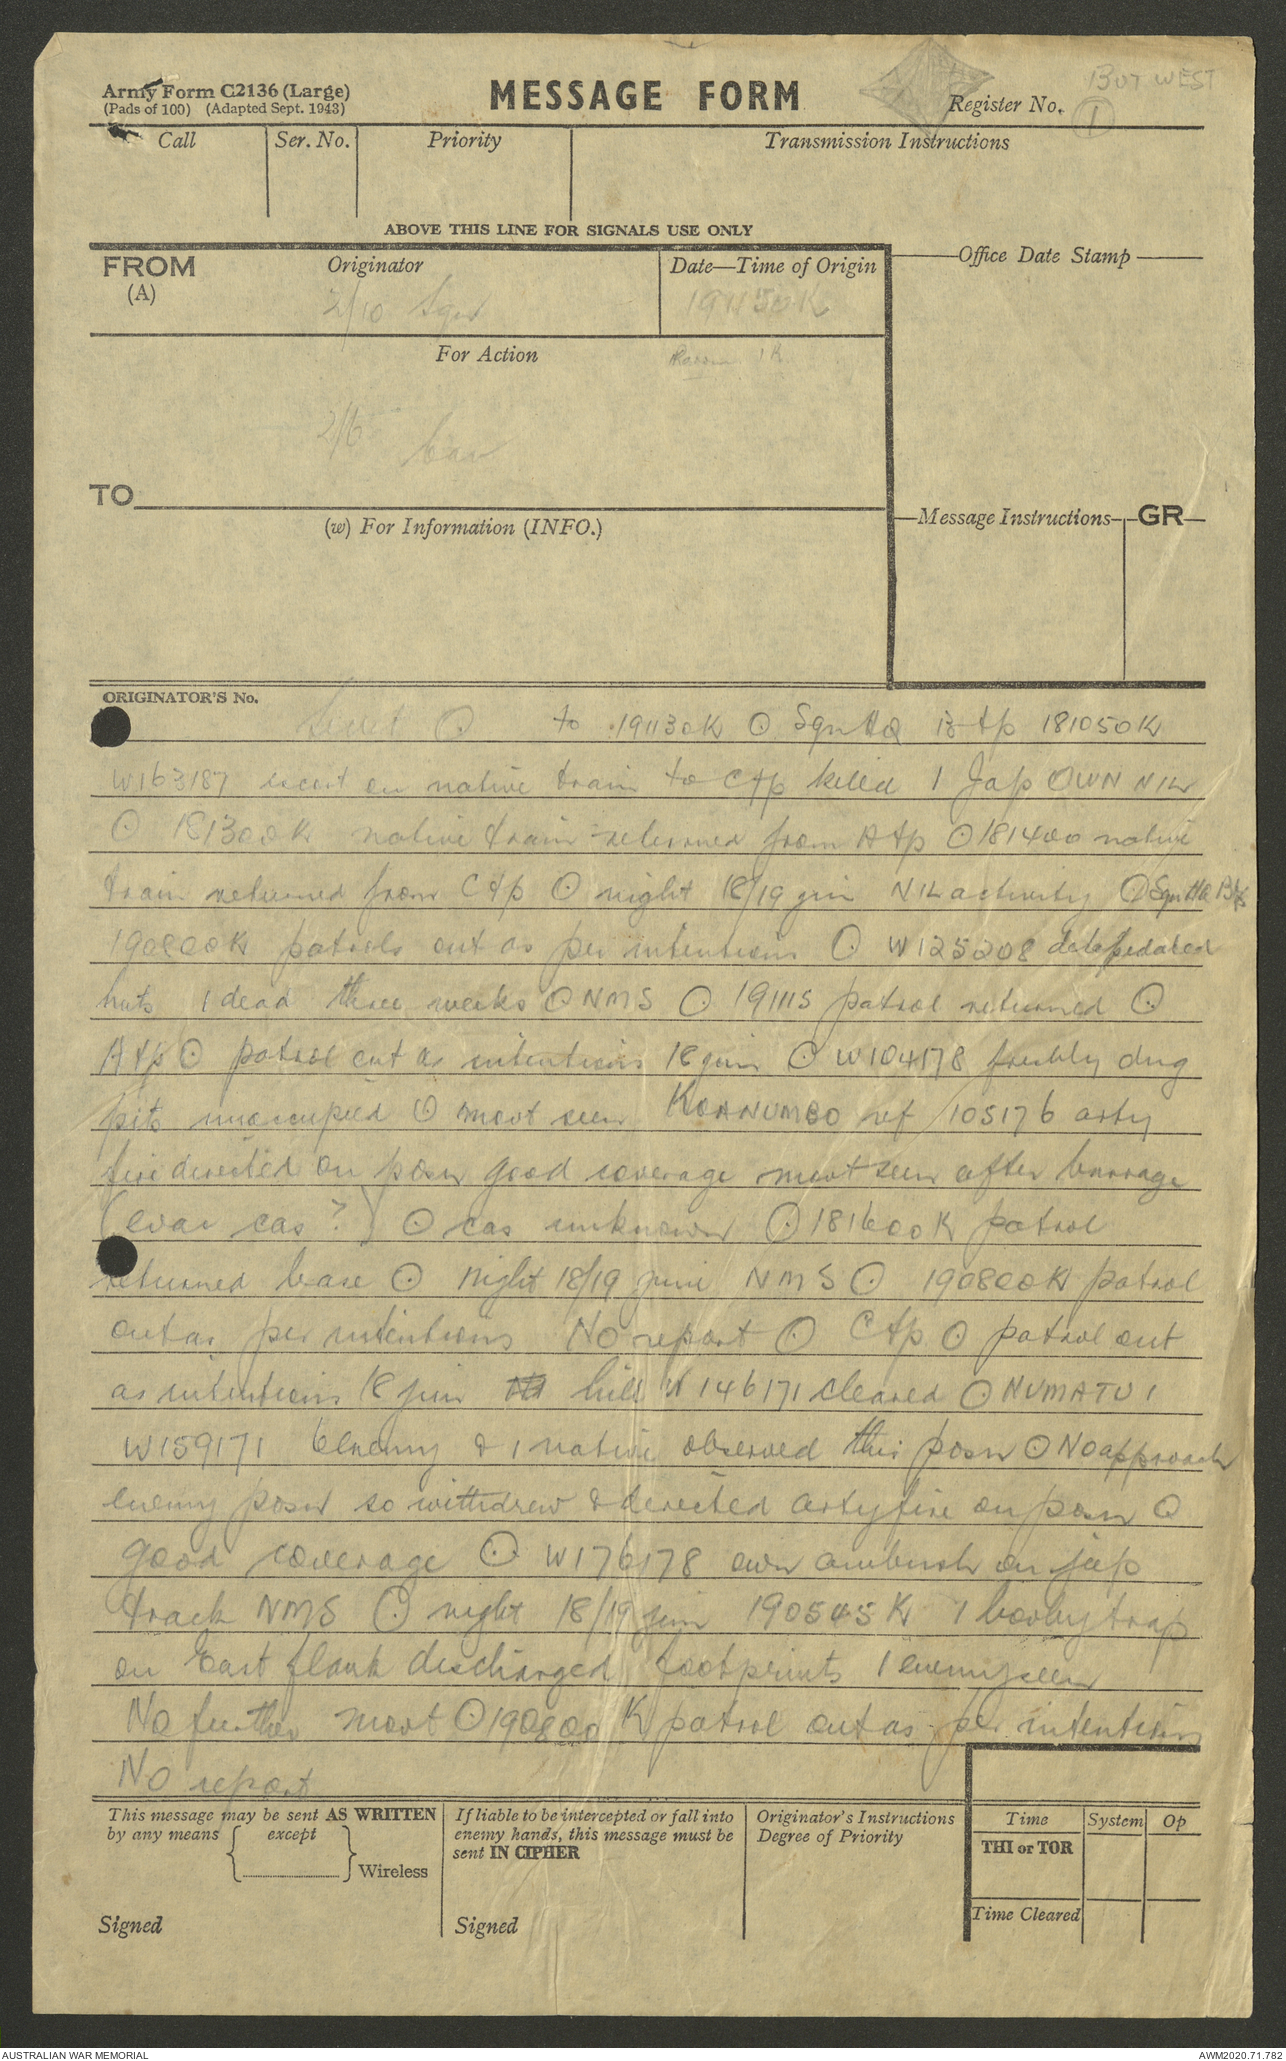 Army Form C2136 (Large)
(Pads of 100) (Adapted Sept. 1943)
MESSAGE FORM
BUT WEST
Register No. 1
Call
Ser. No.
Priority
Transmission Instructions
ABOVE THIS LINE FOR SIGNALS USE ONLY
FROM
(A)
Originator
2/10 Sqn
Date—Time of Origin
191150K
Office Date Stamp
For Action
1K
2/6 Cav
TO
(w) For Information (INFO.)
Message Instructions
GR
ORIGINATOR'S No.
Secret ⊙ to 191130K ⊙ Sqn HQ B tp 181050K
W163187 escort on native train to C tp killed 1 Jap OWN NIL
⊙ 181300K native train returned from A tp ⊙ 181400 native
train returned from C tp ⊙ night 18/19 jun NIL activity ⊙ Sqn HQ B tp
190800K patrols out as per intentions ⊙ W125208 delapedated
huts 1 dead three weeks ⊙ NMS ⊙ 191115 patrol returned ⊙
A tp ⊙ patrol out as intentions 18 jun ⊙ W104178 freshly dug
pits unoccupied ⊙ movt seen KOANUMBO ref 105176 arty
fire directed on posn good coverage movt seen after barrage
(evac cas?) ⊙ cas unknown ⊙ 181600K patrol
returned base ⊙ Night 18/19 june NMS ⊙ 190800K patrol
out as per intentions No report ⊙ C tp ⊙ patrol out
as intentions 18 jun hill W146171 cleared ⊙ NUMATU 1
W159171 6 enemy & 1 native observed this posn ⊙ No approach
enemy posn so withdrew & directed arty fire on posn ⊙
good coverage ⊙ W176178 own ambush on jap
track NMS ⊙ night 18/19 jun 190545K 1 booby trap
on East flank discharged footprints 1 enemy seen
No further movt ⊙ 190800K patrol out as per intentions
No report
This message may be sent AS WRITTEN
by any means { except } Wireless
Signed
If liable to be intercepted or fall into
enemy hands, this message must be
sent IN CIPHER
Signed
Originator's Instructions
Degree of Priority
Time
System
Op
THI or TOR
Time Cleared
AUSTRALIAN WAR MEMORIAL
AWM2020.71.782